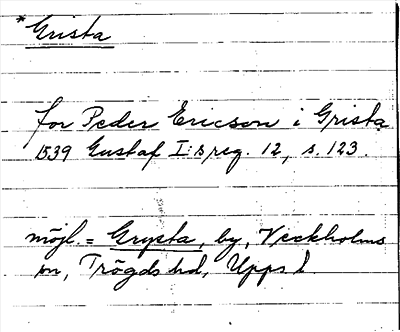 *Grista
för Peder Ericson i Grista
1539 Gustaf I:s reg. 12, s. 123.
möjl. = Grysta, by, Veckholms
sn, Trögds hd, Upps l